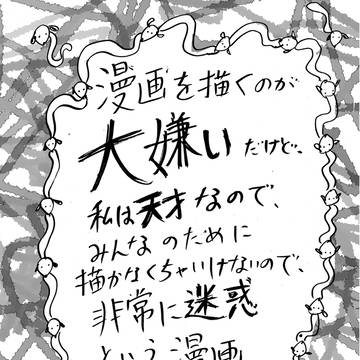 漫画を描くのが
大嫌いだけど、
私は天才なので、
みんなのために
描かなくちゃいけないので、
非常に迷惑
という漫画